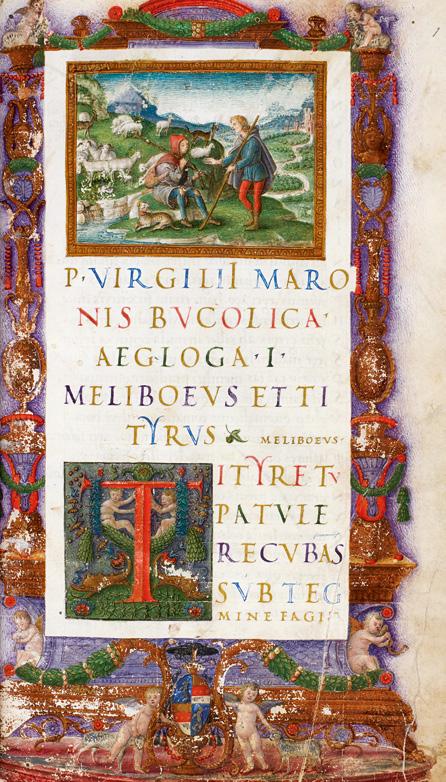 P·VIRGILII MARO
NIS BVCOLICA·
AEGLOGA·I·
MELIBOEVS ET TI
TYRVS MELIBOEVS·
TITYRE TV
PATVLE
RECVBAS
SVB TEG
MINE FAGI